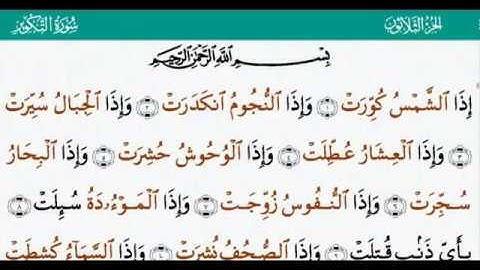 الجزء الثلاثون سورة التكوير
بِسْمِ ٱللَّهِ ٱلرَّحْمَٰنِ ٱلرَّحِيمِ
إِذَا ٱلشَّمْسُ كُوِّرَتْ ١ وَإِذَا ٱلنُّجُومُ ٱنكَدَرَتْ ٢ وَإِذَا ٱلْجِبَالُ سُيِّرَتْ
٣ وَإِذَا ٱلْعِشَارُ عُطِّلَتْ ٤ وَإِذَا ٱلْوُحُوشُ حُشِرَتْ ٥ وَإِذَا ٱلْبِحَارُ
سُجِّرَتْ ٦ وَإِذَا ٱلنُّفُوسُ زُوِّجَتْ ٧ وَإِذَا ٱلْمَوْءُۥدَةُ سُئِلَتْ ٨
بِأَيِّ ذَنۢبٍ قُتِلَتْ ٩ وَإِذَا ٱلصُّحُفُ نُشِرَتْ ١٠ وَإِذَا ٱلسَّمَآءُ كُشِطَتْ